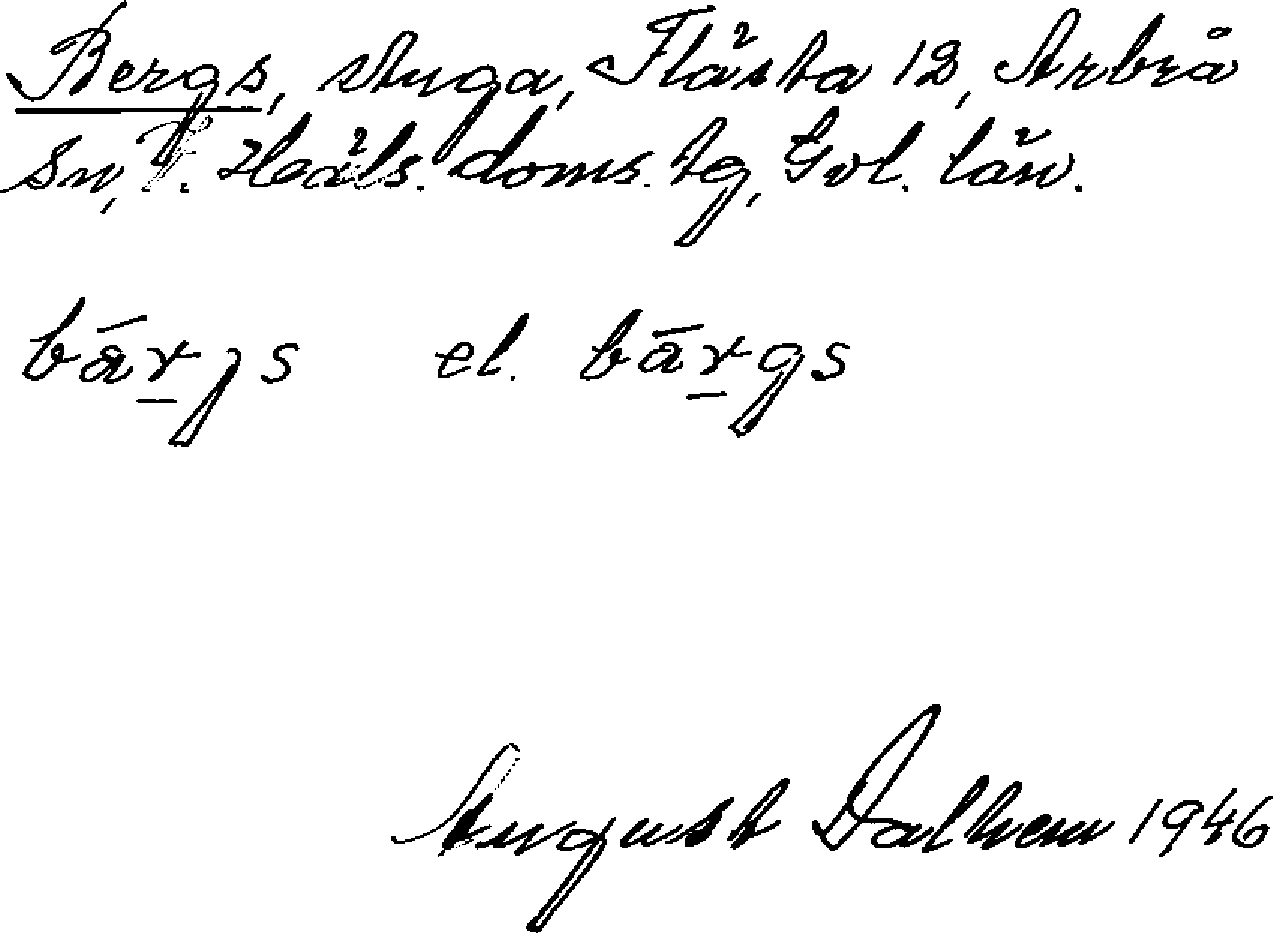 Bergs, stuga, Flästa 12, Arbrå
Sn, V. Häls. doms. tg, Gvl. län.
bā̈rjs el. bā̈rgs
August Dalhem 1946